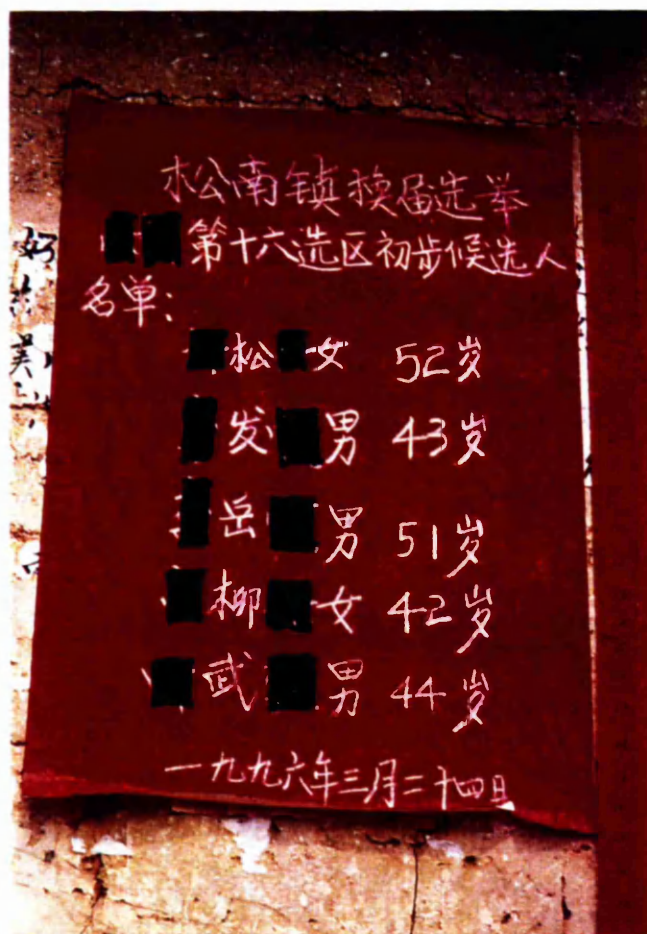 松南镇换届选举
第十六选区初步候选人
名单:
松 女 52岁
发 男 43岁
岳 男 51岁
柳 女 42岁
武 男 44岁
一九九六年三月二十四日